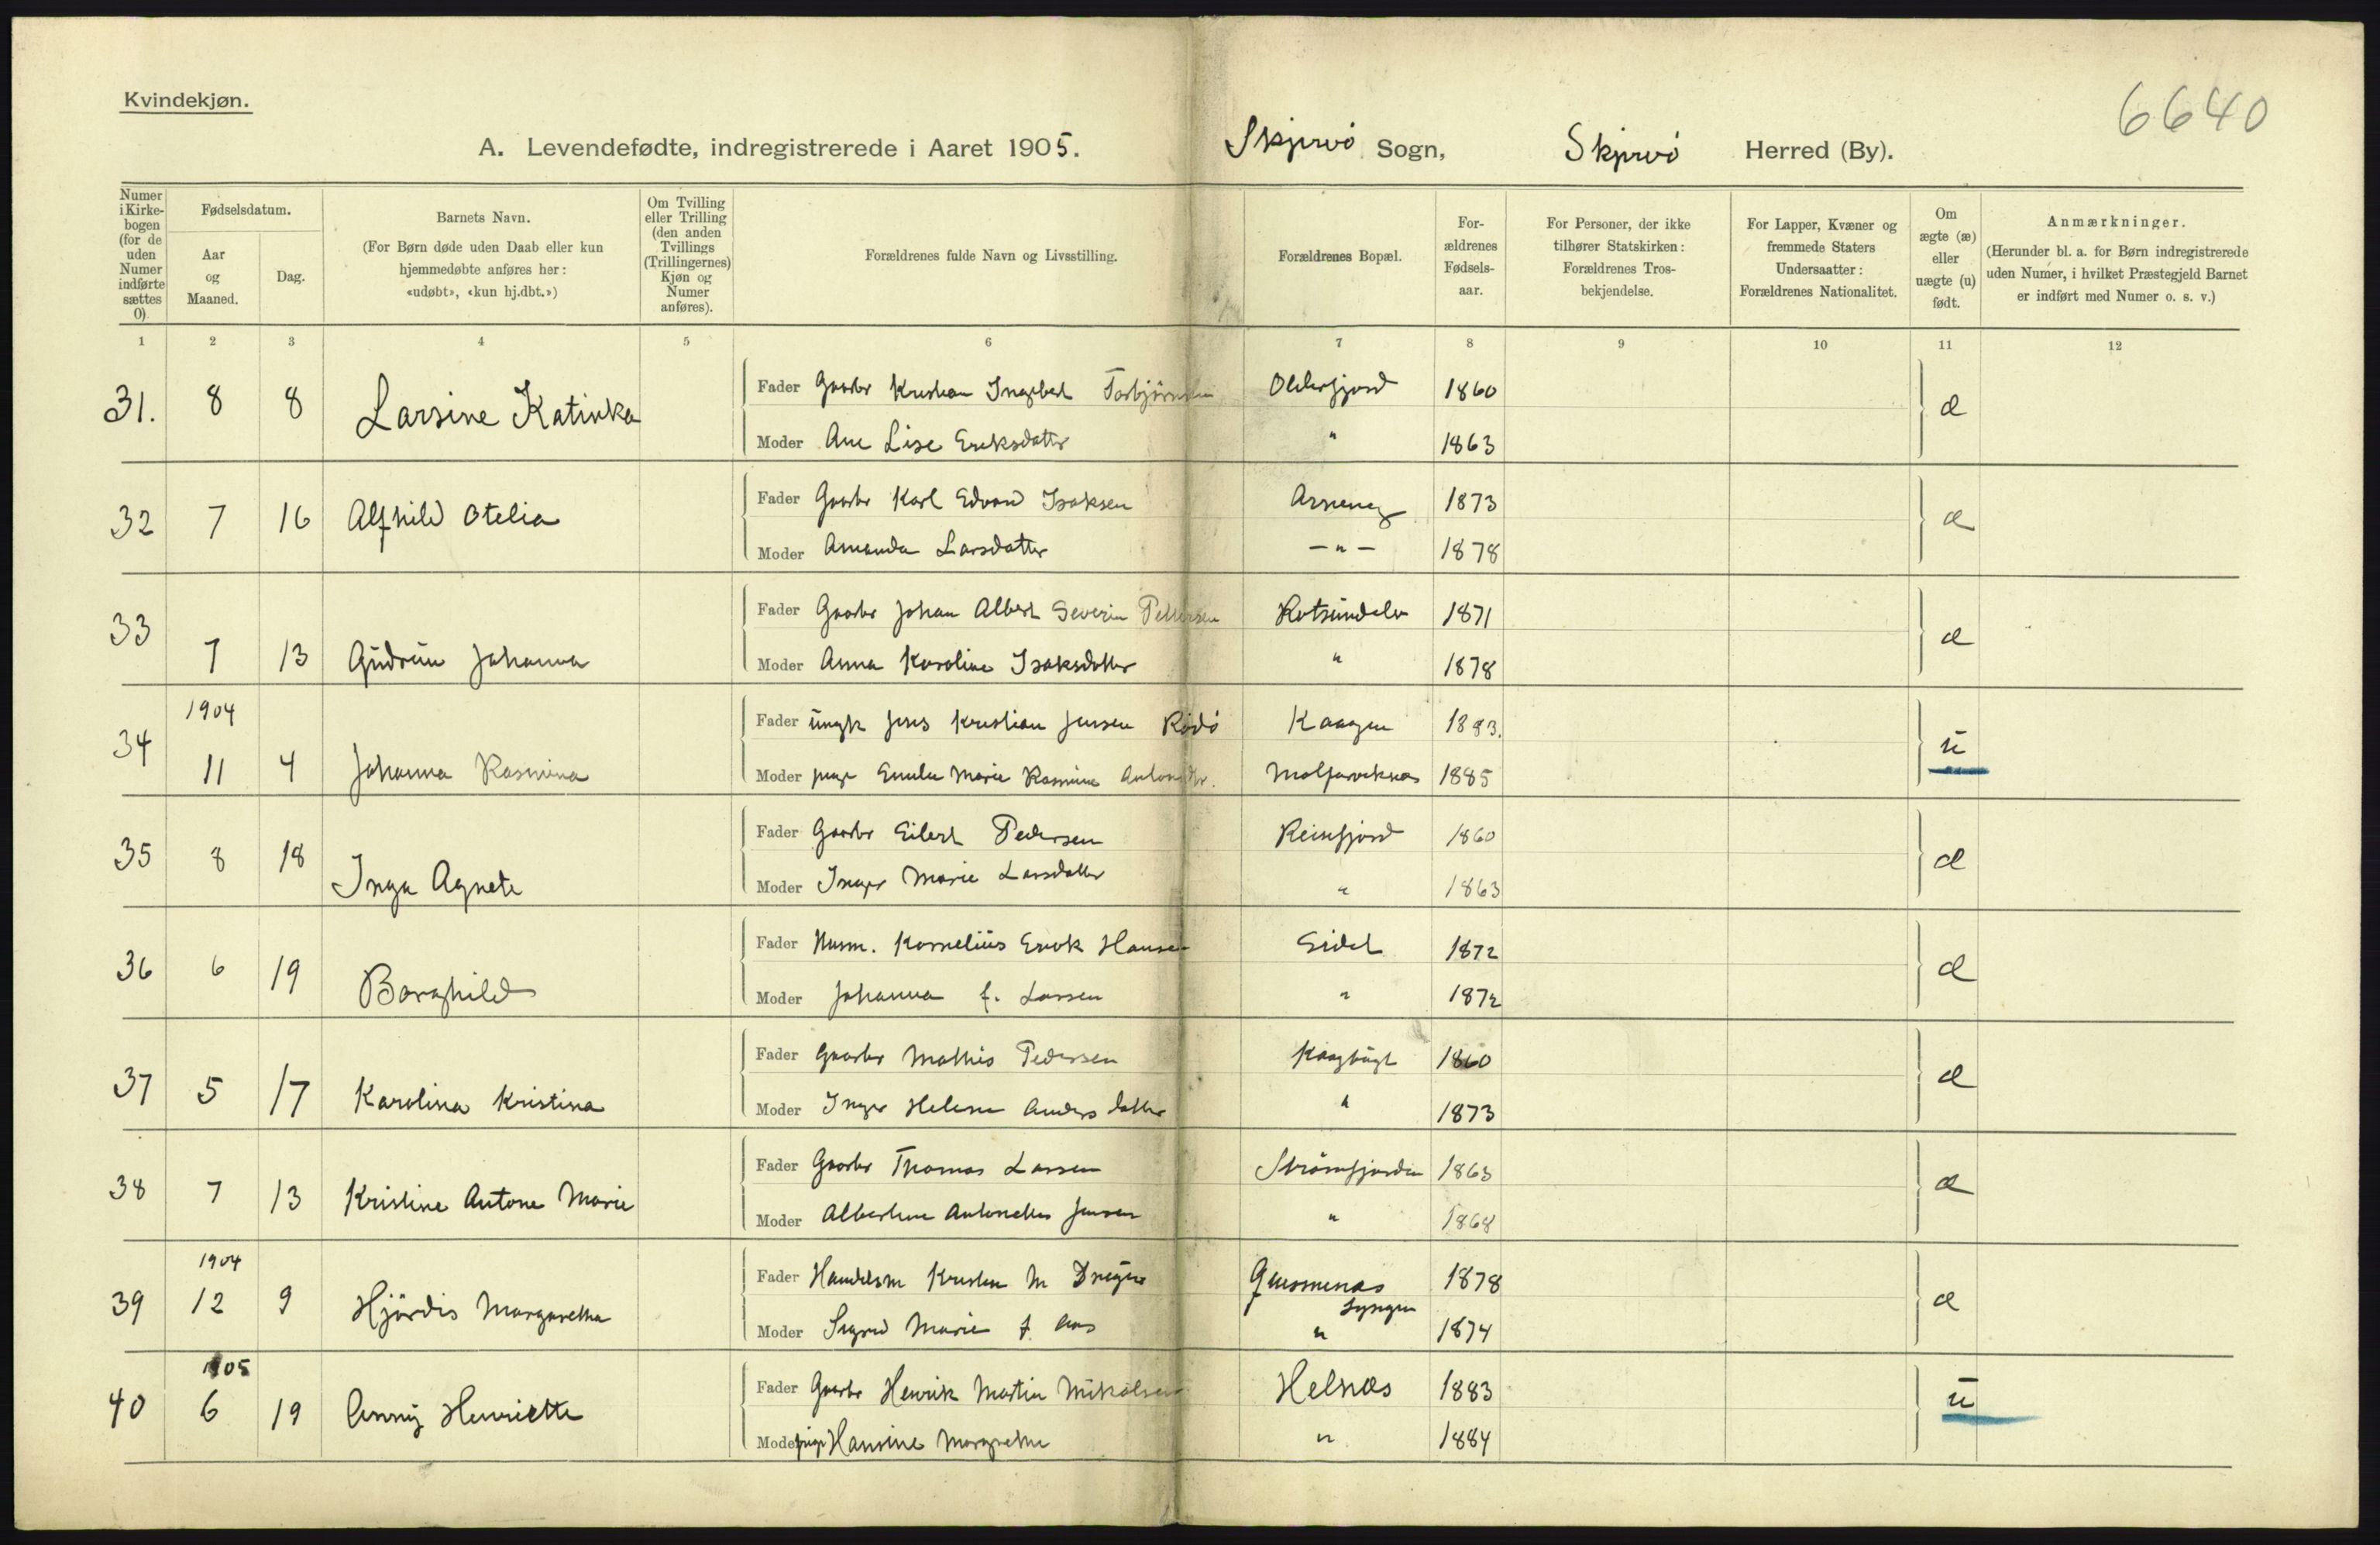 Kvindekjøn.
6640
A. Levendefødte, indregistrerede i Aaret 1905. Skjervö Sogn, Skjervö Herred (By).
Numer i Kirkebogen (for de uden Numer indførte sættes 0).
Fødselsdatum.
Aar og Maaned.
Dag.
Barnets Navn.
(For Børn døde uden Daab eller kun hjemmedøbte anføres her: «udøbt», «kun hj.dbt.»)
Om Tvilling eller Trilling (den anden Tvillings (Trillingernes) Kjøn og Numer anføres).
Forældrenes fulde Navn og Livsstilling.
Forældrenes Bopæl.
Forældrenes Fødselsaar.
For Personer, der ikke tilhører Statskirken: Forældrenes Trosbekjendelse.
For Lapper, Kvæner og fremmede Staters Undersaatter: Forældrenes Nationalitet.
Om ægte (æ) eller uægte (u) født.
Anmærkninger.
(Herunder bl. a. for Børn indregistrerede uden Numer, i hvilket Præstegjeld Barnet er indført med Numer o. s. v.)
1 2 3 4 5 6 7 8 9 10 11 12
31. 8 8 Larsine Katinka Fader Gaarbr Kristian Ingebert Torbjørnsen Olderfjord 1860 æ
Moder Ane Lise Eriksdatter " 1863
32 7 16 Alfhild Otelia Fader Gaarbr Karl Edvard Isaksen Arneng 1873 æ
Moder Amanda Larsdatter — " — 1878
33 7 13 Gudrun Johanna Fader Gaarbr Johan Albert Severin Pettersen Rotsundelv 1871 æ
Moder Anna Karoline Isaksdatter " 1878
1904
34 11 4 Johanna Rasmina Fader ungk Jens Kristian Jensen Rödö Kaagen 1883. u
Moder pige Emelie Marie Rasmine Antonsdtr. 1885
35 8 18 Inga Agnete Fader Gaarbr Eilert Pedersen Reisefjord 1860 æ
Moder Inger Marie Larsdatter " 1863
36 6 19 Borghild Fader Husm. Kornelius Erik Hansen Eidet 1872 æ
Moder Johanna f. Larsen " 1872
37 5 17 Karolina Kristina Fader Gaarbr Mathis Pedersen Kaagbugt 1860 æ
Moder Inger Helene Andersdatter " 1873
38 7 13 Kristine Antone Marie Fader Gaarbr Thomas Larsen Strömfjorden 1863 æ
Moder Albertine Antonette Jensen " 1868
1904
39 12 9 Hjördis Margaretha Fader Handelsm Kristen M 1878 æ
Lyngen
Moder Sigrid Marie f. Aas " 1874
1905
40 6 19 Anny Henriette Fader Gaarbr Henrik Martin Mikalsen Helnæs 1883 u
Moder pige Hansine Margrethe " 1884